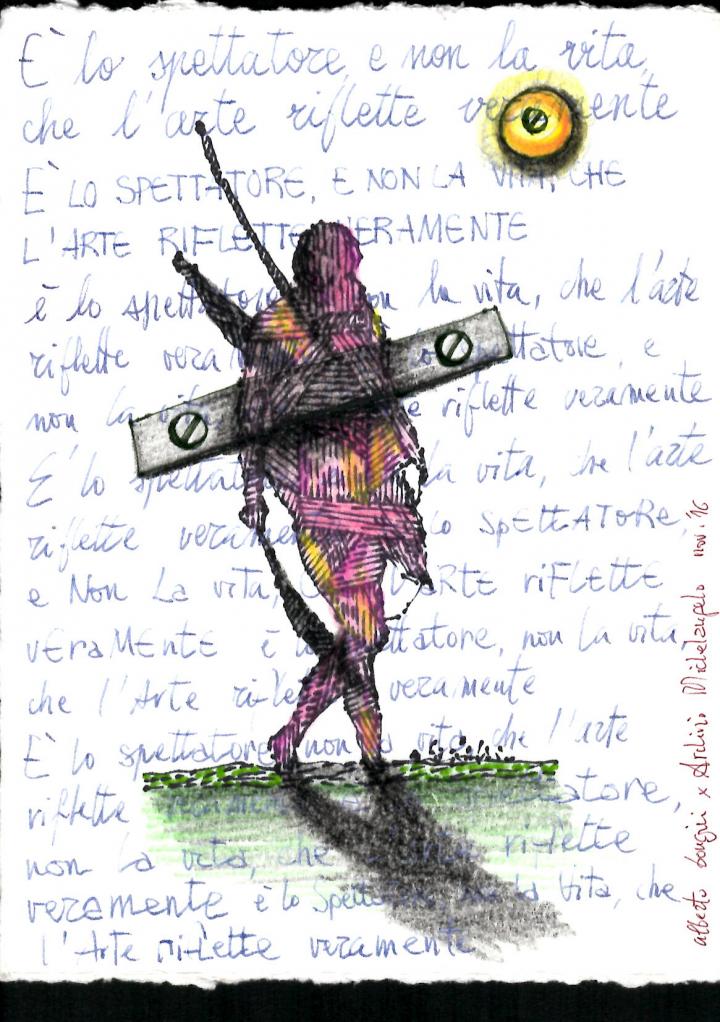 È lo spettatore, e non la vita,
che l'arte riflette veramente
È LO SPETTATORE, E NON LA VITA, CHE
L'ARTE RIFLETTE VERAMENTE
è lo spettatore non la vita, che l'arte
riflette vera lo spettatore, e
non la vita, e riflette veramente
E' lo spettat la vita, che l'arte
riflette verame lo SpETTATORE,
e Non La vita, L'ARTE riFLETTE
VEraMENTE è lo ettatore, non la vita,
che l'Arte rifle veramente
È lo spettatore non la vita che l'arte
riflette veramen tatore,
non la vita, che l'arte riflette
veramente è lo Spettatore, non la Vita, che
l'Arte riflette veramente
alberto x Archivio Michelangelo nov. '16